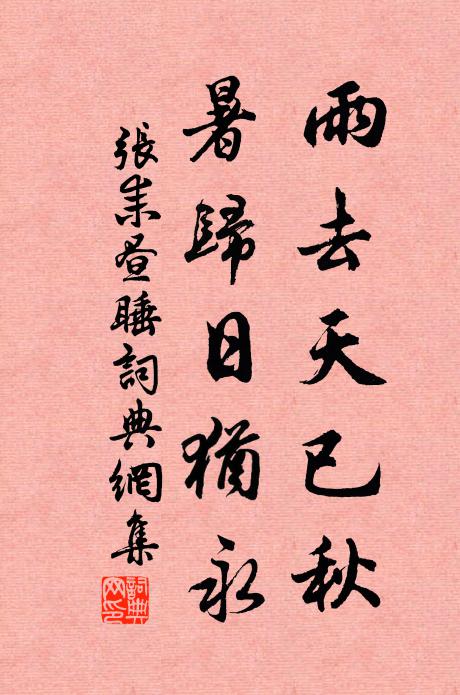 雨去天已秋
暑歸日猶永
張耒晝睡詞典網集
詞典網印